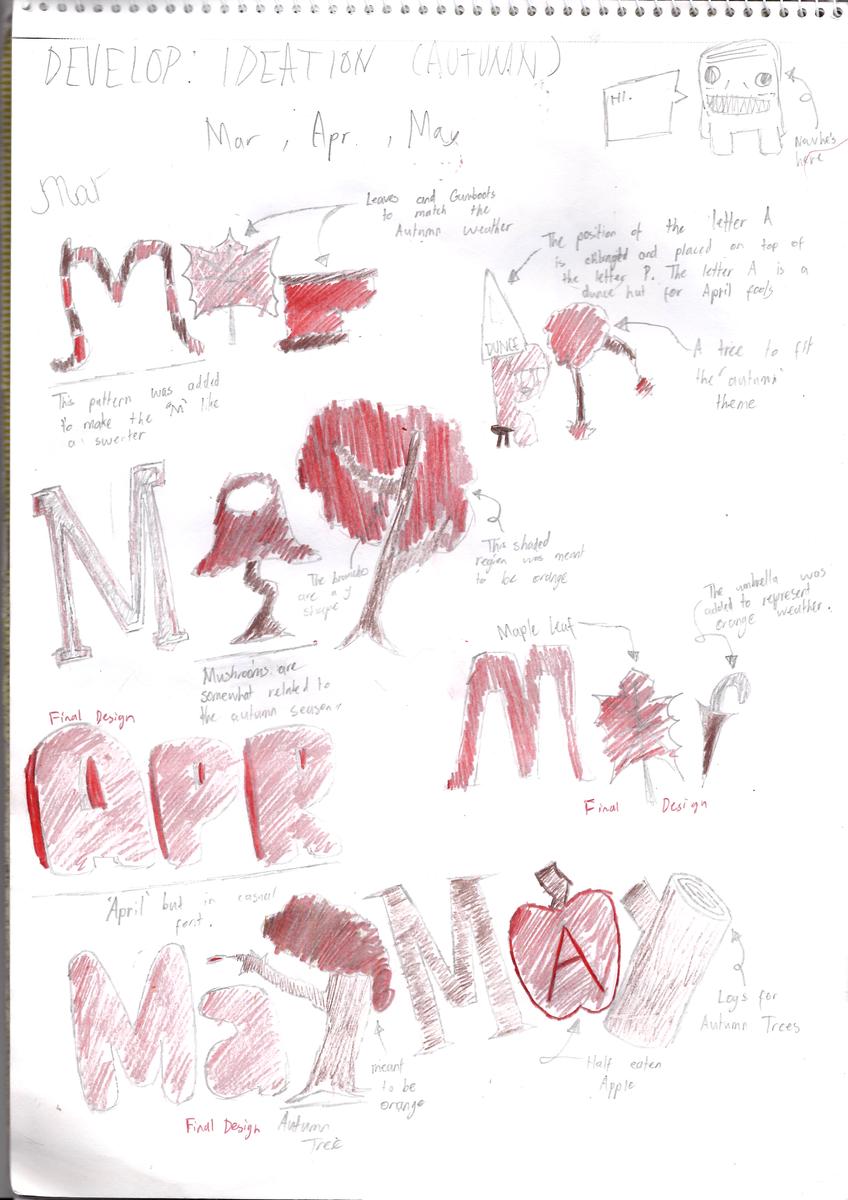 DEVELOP: IDEATION (AUTUMN)
Mar, Apr., May
HI.
here
Mar
Leaves and Gumboots
to match the
Autumn weather
M
This pattern was added
to make the "M" like
a sweater
The position of the letter A
is enlarged and placed on top of
the letter P. The letter A is a
dunce hat for April fools
DUNCE
A tree to fit
the "autumn"
theme
M
The branches
are a y
shape
This shaded
region was meant
to be orange
Mushrooms are
somewhat related to
the autumn season
The umbrella was
added to represent
orange weather.
Maple Leaf
M
Final Design
Final Design
APR
'April' but in casual
font.
Ma
meant
to be
orange
Final Design
Autumn
Tree
MAY
Half eaten
Apple
Logs for
Autumn Trees